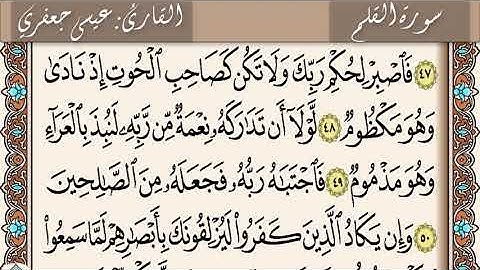 سورة القلم القارئ: عيسى جعفري
٤٧ فَٱصۡبِرۡ لِحُكۡمِ رَبِّكَ وَلَا تَكُن كَصَاحِبِ ٱلۡحُوتِ إِذۡ نَادَىٰ
وَهُوَ مَكۡظُومٞ ٤٨ لَّوۡلَآ أَن تَدَٰرَكَهُۥ نِعۡمَةٞ مِّن رَّبِّهِۦ لَنُبِذَ بِٱلۡعَرَآءِ
وَهُوَ مَذۡمُومٞ ٤٩ فَٱجۡتَبَٰهُ رَبُّهُۥ فَجَعَلَهُۥ مِنَ ٱلصَّٰلِحِينَ
٥٠ وَإِن يَكَادُ ٱلَّذِينَ كَفَرُواْ لَيُزۡلِقُونَكَ بِأَبۡصَٰرِهِمۡ لَمَّا سَمِعُواْ